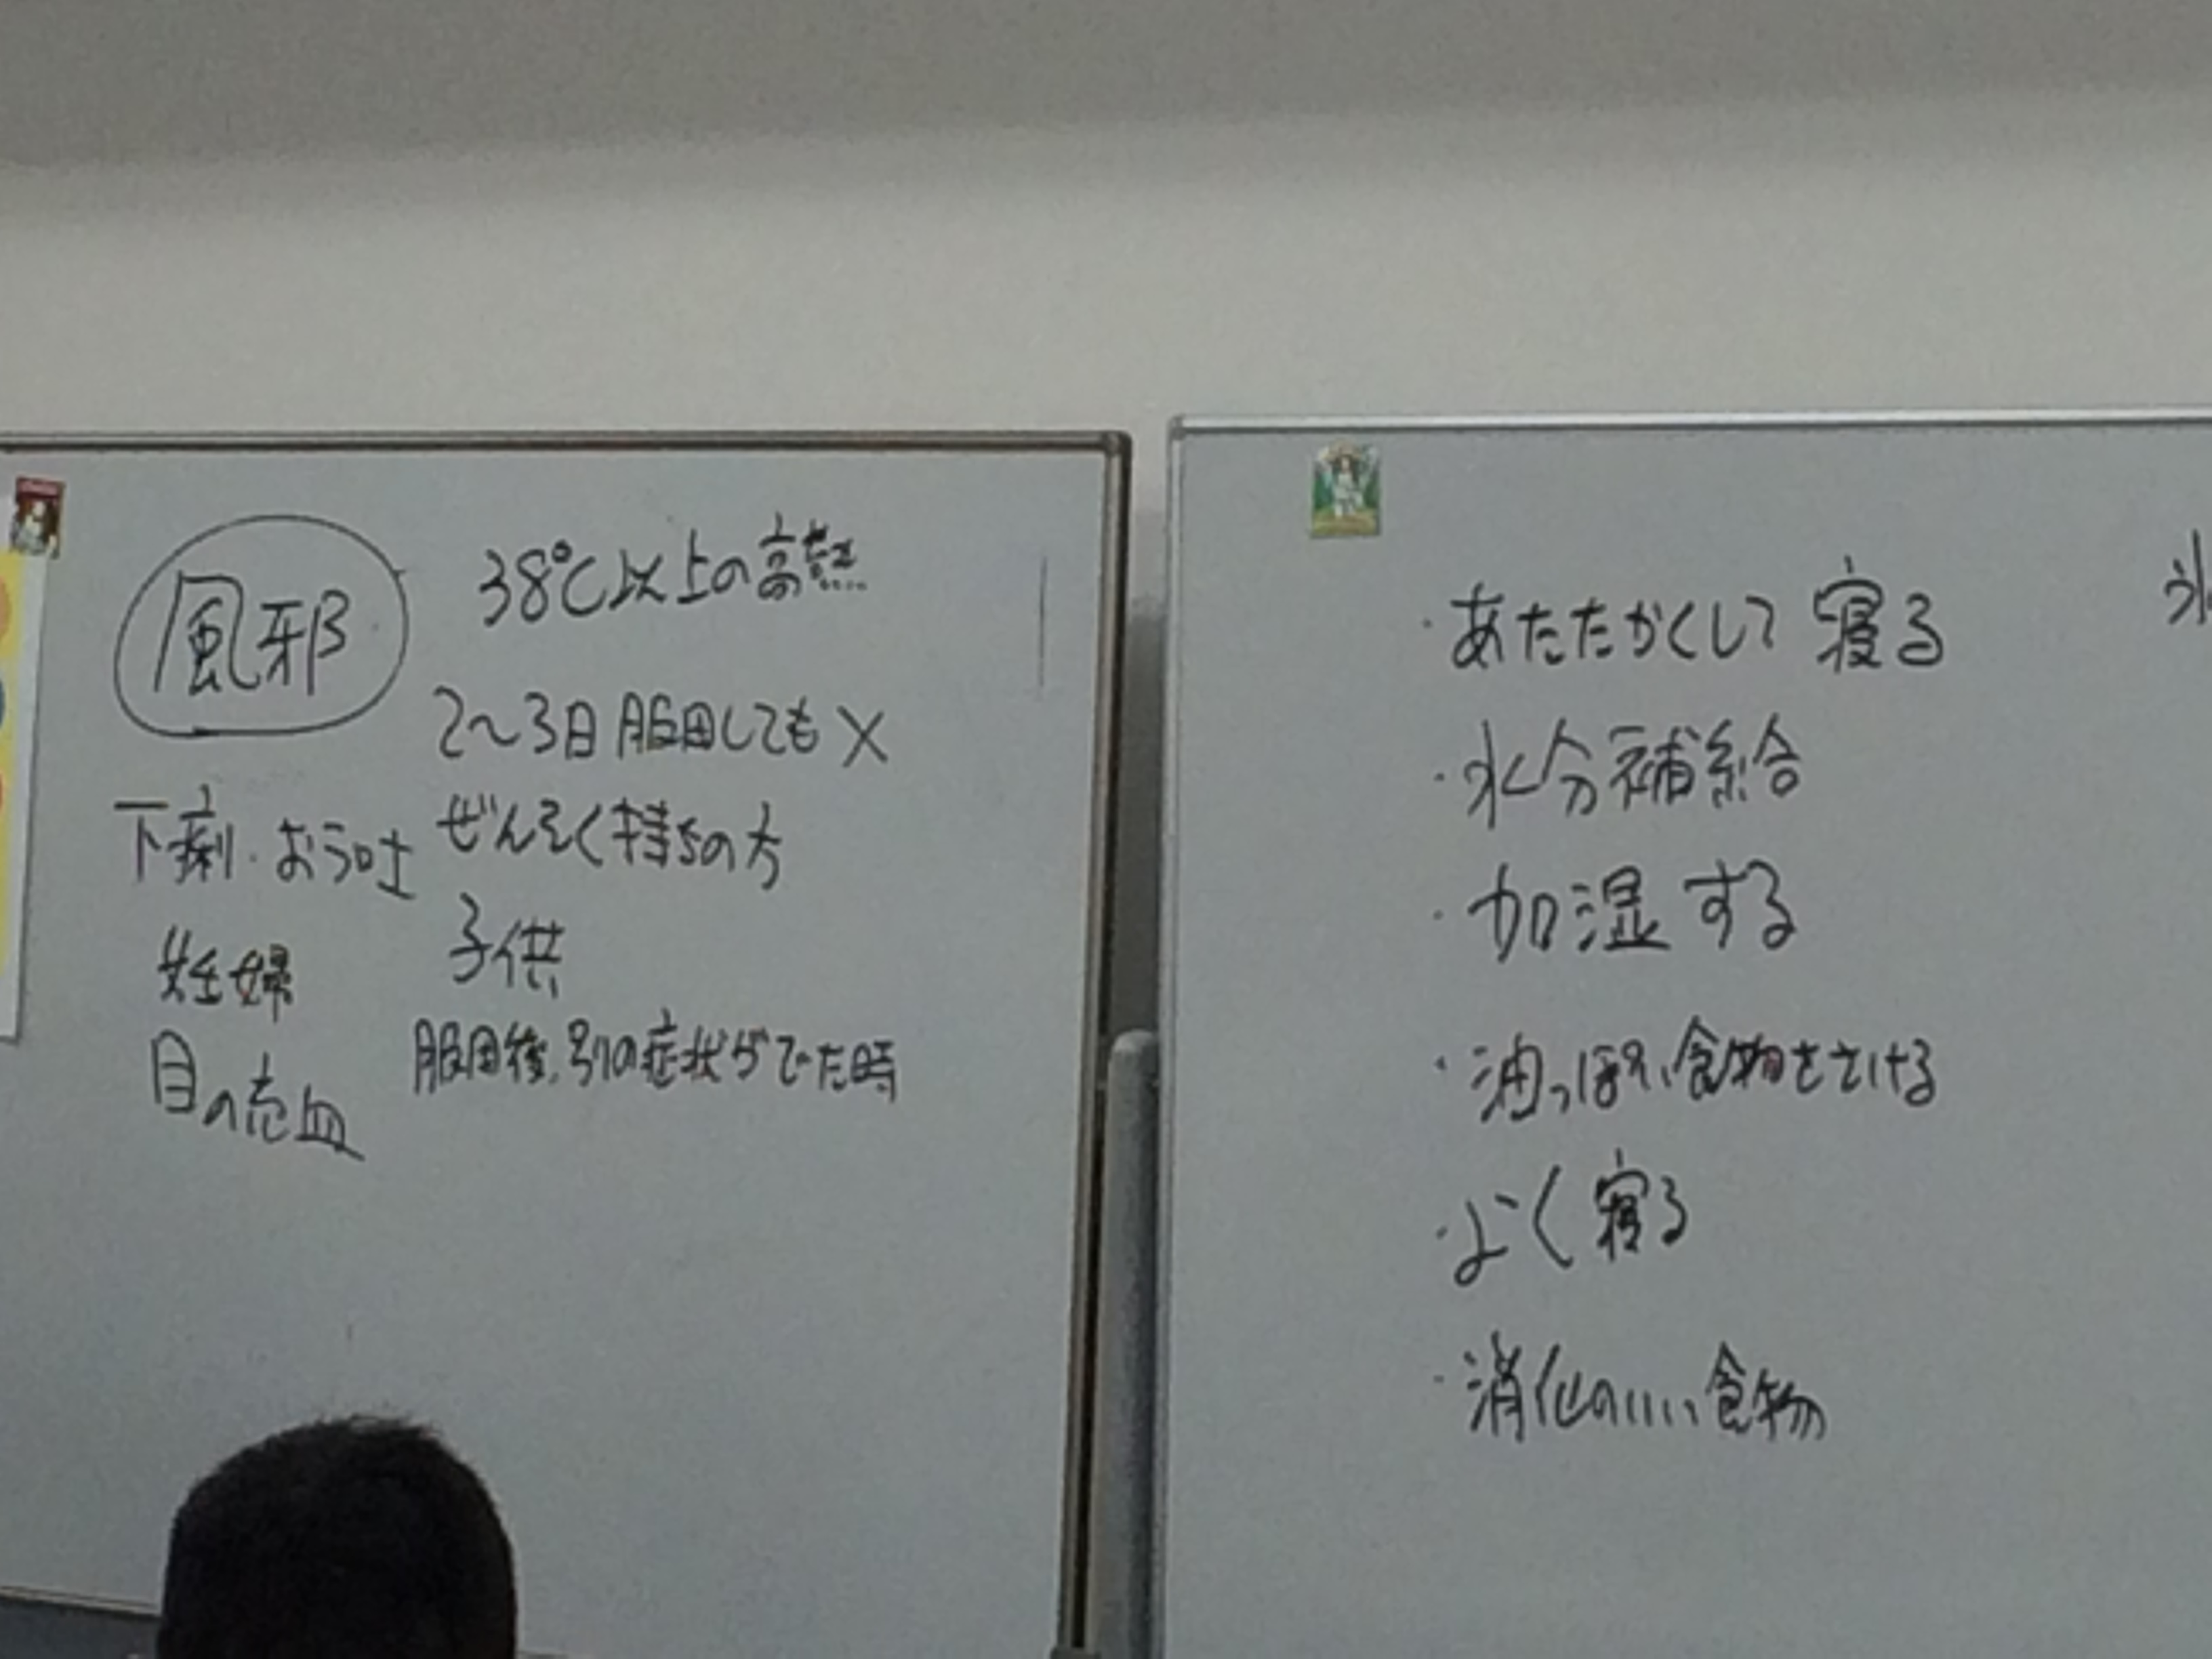 風邪
38℃以上の高熱
2〜3日服用しても×
下痢・おう吐
ぜんそく持ちの方
妊婦
子供
目の充血
服用後、別の症状がでた時
・あたたかくして寝る
・水分補給
・加湿する
・油っぽい食物をさける
・よく寝る
・消化のいい食物